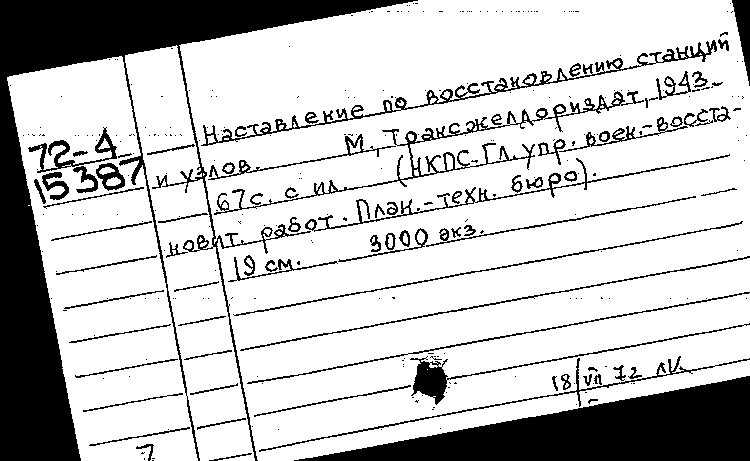 72-4
15387
Наставление по восстановлению станций
и узлов. М., Трансжелдориздат, 1943.
67 с. с ил. (НКПС. Гл. упр. воен.-восста-
новит. работ. План.-техн. бюро).
19 см. 3000 экз.
18/VII 72
7